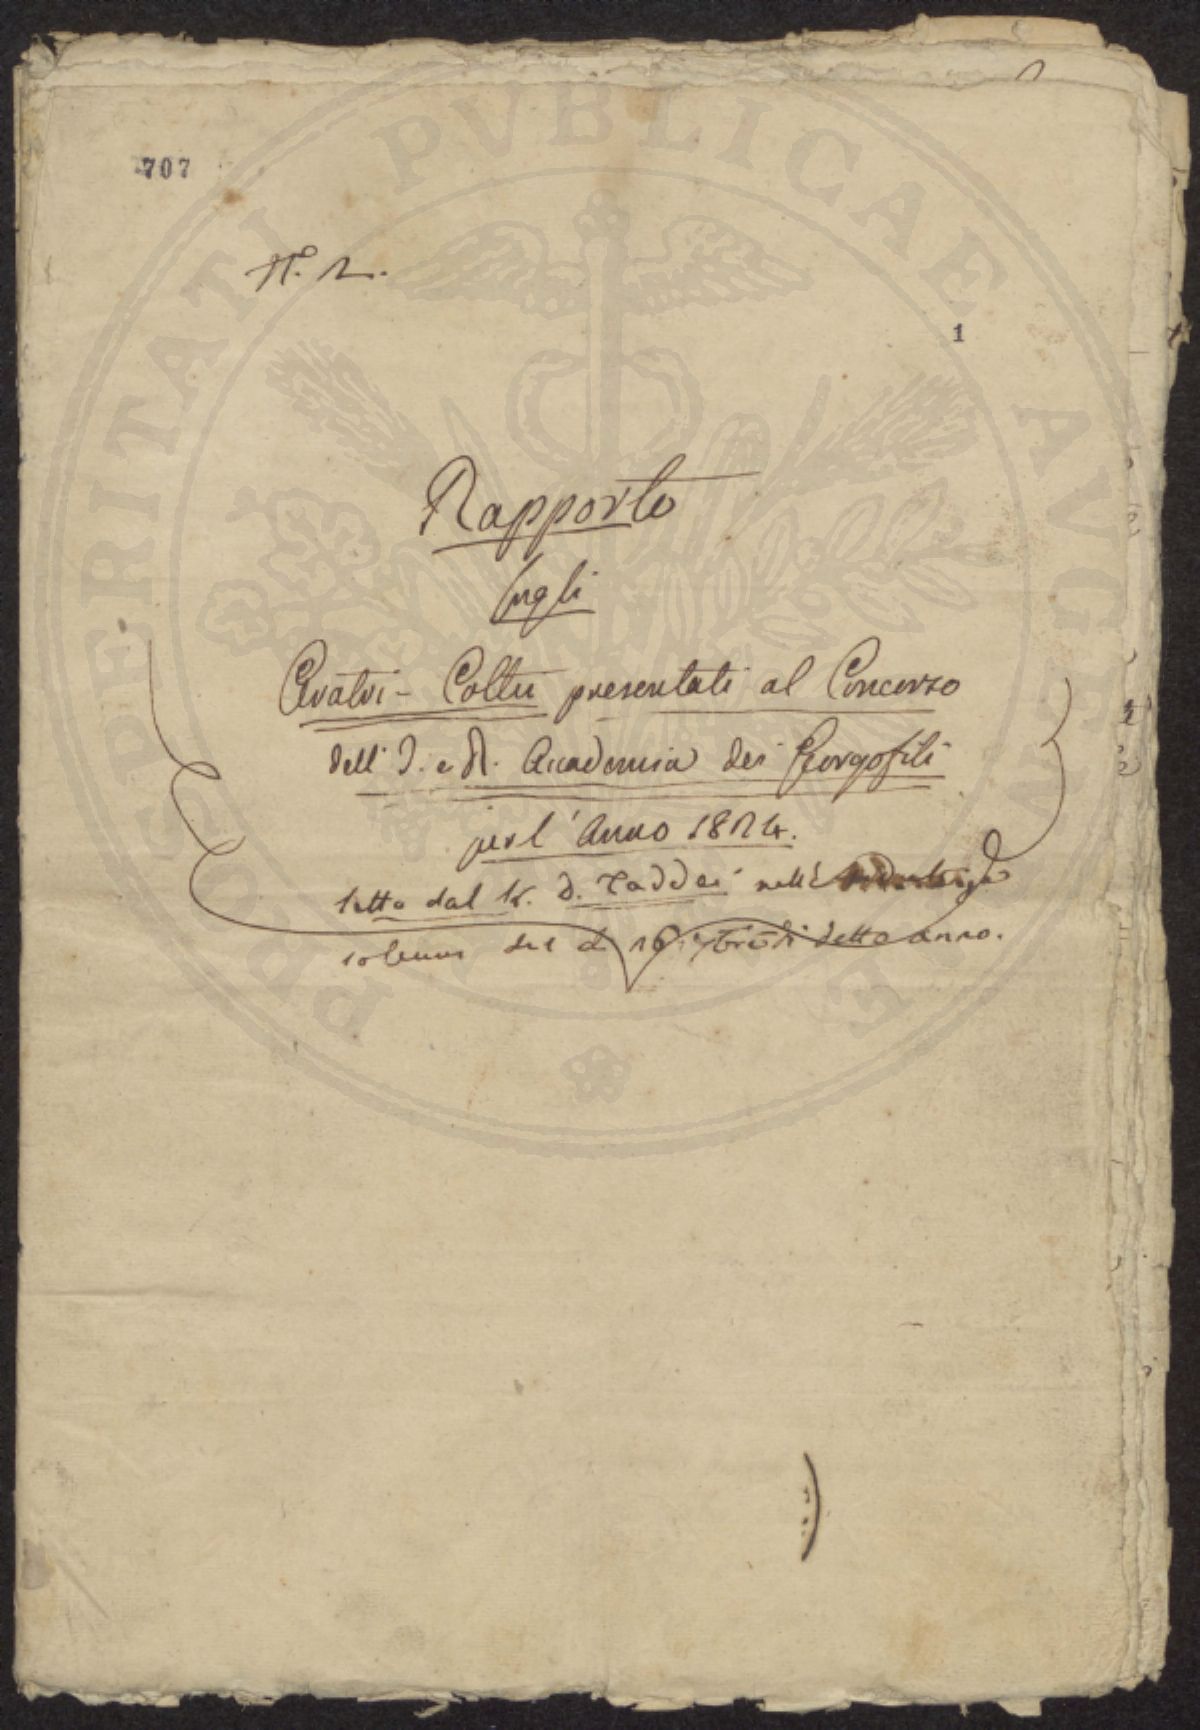 707
N.º 2.
1
Rapporto
sugli
Aratri-Coltri presentati al Concorso
dell' I. e R. Accademia dei Georgofili
per l'Anno 1824.
letto dal D. Taddei nell'
solenne del dì detto anno.
PROSPERITATI PVBLICAE AVGENDAE